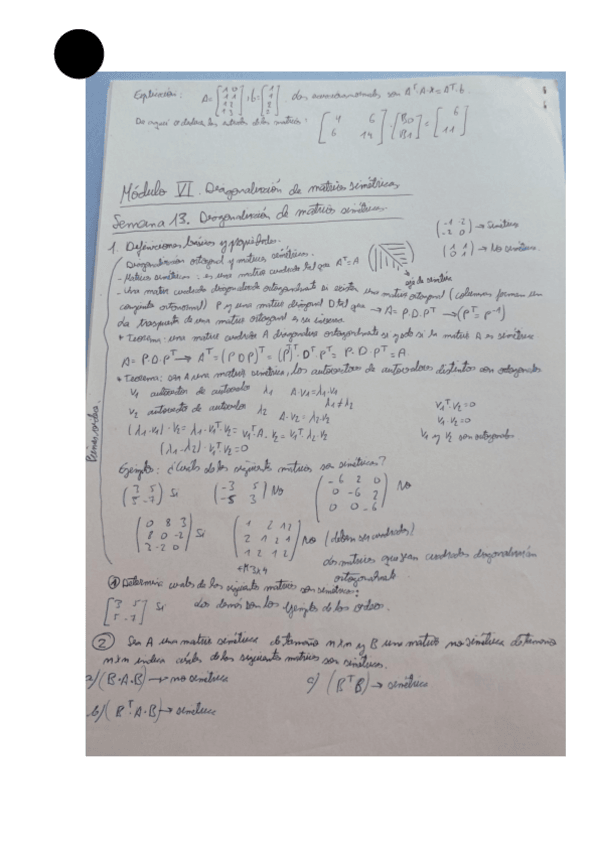 Explicación: A=[1 0 1 1 1 2 1 3] ; b=[1 1 2 2] las ecuaciones normales son Aᵀ·A·x=Aᵀ·b.
De aquí se obtiene matrices: [4 6 6 14]·[β0 β1]=[6 11]
Módulo VI. Diagonalización de matrices simétricas
Semana 13. Diagonalización de matrices simétricas.
1. Definiciones básicas y propiedades.
(-1 -2 -2 0) → simétrica
Diagonalización ortogonal y matrices simétricas.
(1 1 0 1) → No simétrica
- Matrices simétricas = es una matriz cuadrada tal que Aᵀ=A
eje de simetría
- Una matriz cuadrada diagonalizable ortogonalmente si existen una matriz ortogonal (columnas forman un
conjunto ortonormal) P y una matriz diagonal D tal que → A=P·D·Pᵀ → (Pᵀ=P⁻¹)
La traspuesta de una matriz ortogonal es su inversa.
* Teorema: una matriz cuadrada A diagonaliza ortogonalmente si y solo si la matriz A es simétrica
A=P·D·Pᵀ → Aᵀ=(P·D·Pᵀ)ᵀ=(Pᵀ)ᵀ·Dᵀ·Pᵀ=P·D·Pᵀ=A
* Teorema: sea A una matriz simétrica, los autovectores de autovalores distintos son ortogonales
V₁ autovector de autovalor λ₁ A·V₁=λ₁·V₁
V₂ autovector de autovalor λ₂ A·V₂=λ₂·V₂ λ₁≠λ₂
V₁ᵀ·V₂=0
V₁·V₂=0
(λ₁·V₁)·V₂=λ₁·V₁ᵀ·V₂=V₁ᵀ·A·V₂=V₁ᵀ·λ₂·V₂
V₁ y V₂ son ortogonales
(λ₁-λ₂)·V₁ᵀ·V₂=0
Ejemplo: ¿Cuáles de las siguientes matrices son simétricas?
(3 5 5 -7) Si (-3 5 -5 3) No (-6 2 0 0 -6 2 0 0 -6) No
(0 8 3 8 0 -2 3 -2 0) Si (1 2 1 2 2 1 2 1 1 2 1 2) No (deben ser cuadradas)
3x4
Las matrices que sean cuadradas diagonalizarán
ortogonalmente.
① Determina cuales de las siguientes matrices son simétricas:
[3 5 5 -7] Si Las demás son los ejemplos de los videos.
② Sea A una matriz simétrica de tamaño n×n y B una matriz no simétrica de tamaño
n×n indica cuáles de las siguientes matrices son simétricas.
a) (B·A·B) → no simétrica c) (BᵀB) → simétrica
b) (Bᵀ·A·B) → simétrica